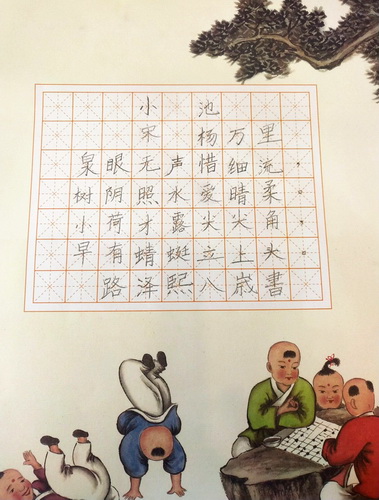 小池
宋 杨万里
泉眼无声惜细流，
树阴照水爱晴柔。
小荷才露尖尖角，
早有蜻蜓立上头。
路泽熙八歲書